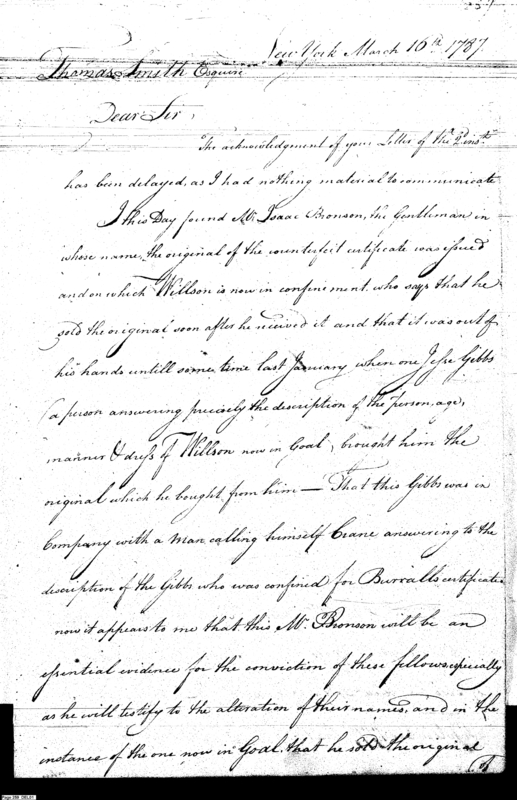 New York March 16th 1787.
Thomas Smith Esquire
Dear Sir,
The acknowledgment of your Letter of the 2d inst.
has been delayed, as I had nothing material to communicate
I this Day found Mr. Isaac Bronson, the Gentleman in
whose name, the original of the counterfeit certificate was issued
and on which Willson is now in confinement. who says that he
sold the original soon after he received it and that it was out of
his hands untill some time last January when one Jesse Gibbs
(a person answering precisely the description of the person, age,
manner & dress of Willson now in Goal) brought him the
original which he bought from him — That this Gibbs was in
Company with a Man calling himself Crane answering to the
description of the Gibbs who was confined for Burralls certificates
now it appears to me that this Mr. Bronson will be an
essential evidence for the conviction of these fellows especially
as he will testify to the alteration of their names, and in the
instance of the one now in Goal. that he sold the original